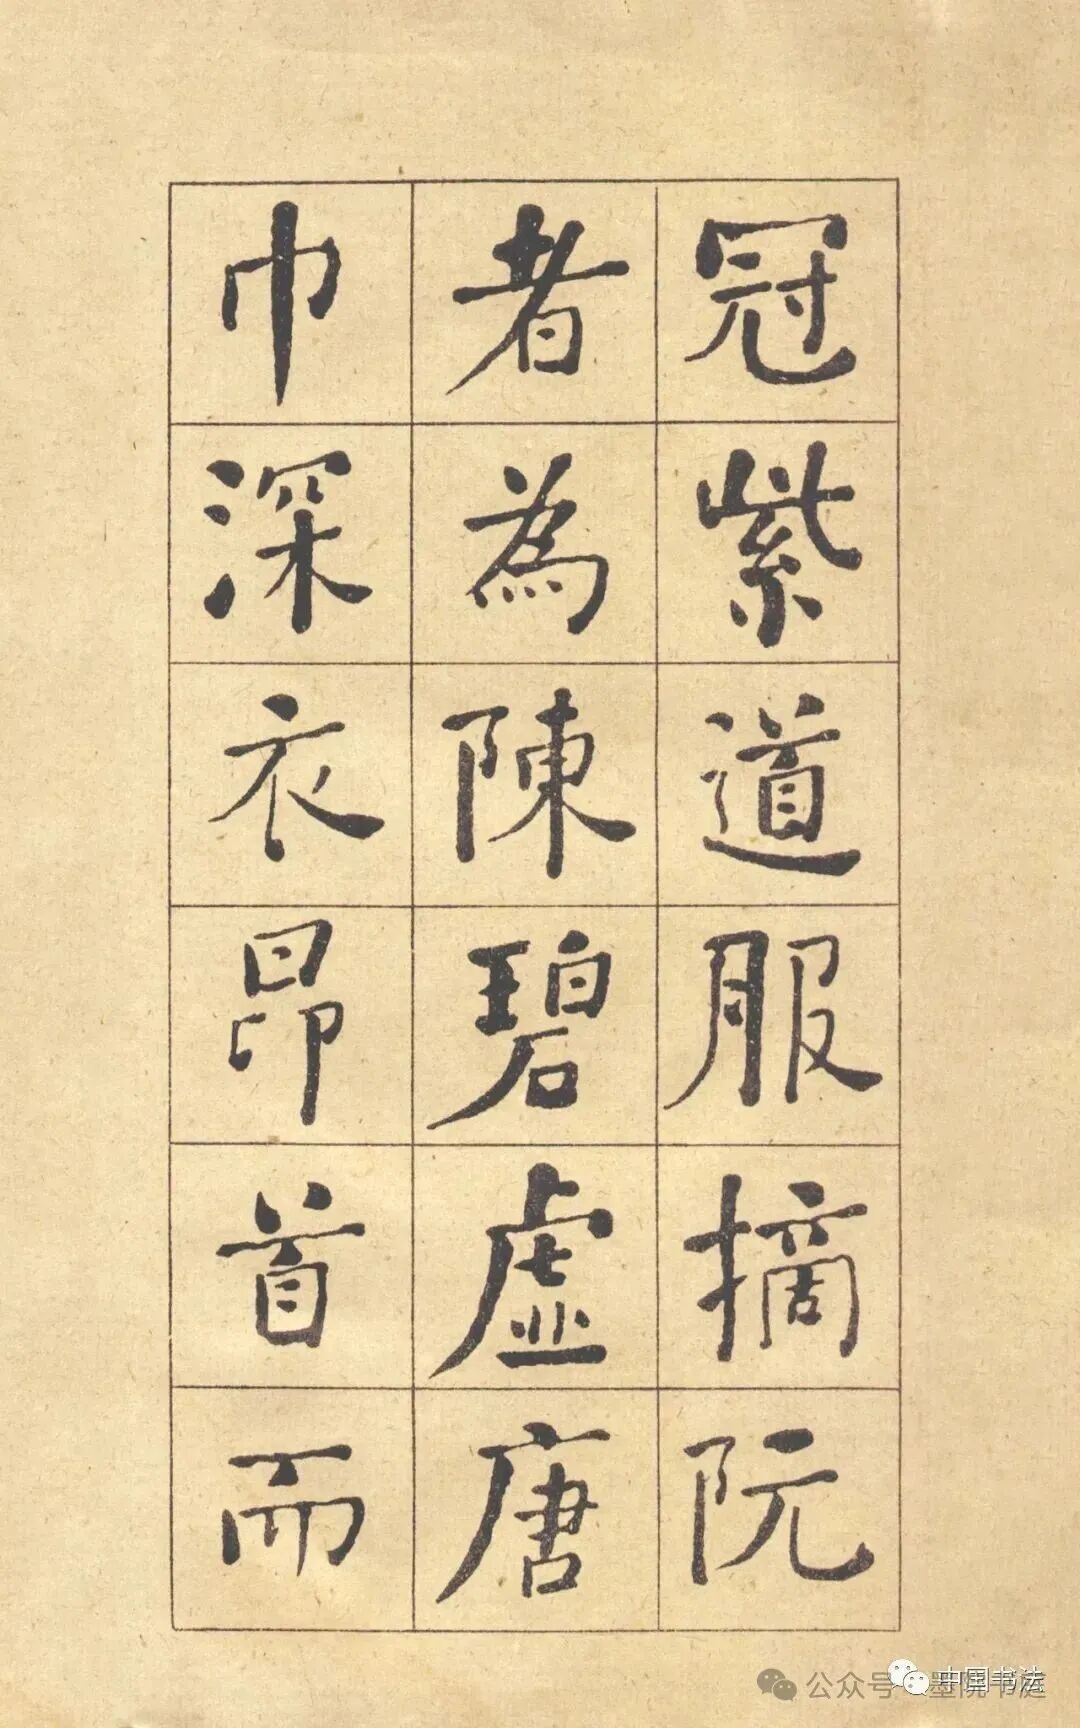 冠紫道服摘阮
者為陳碧虛唐
巾深衣昂首而
公众号 墨院书庭
中国书法